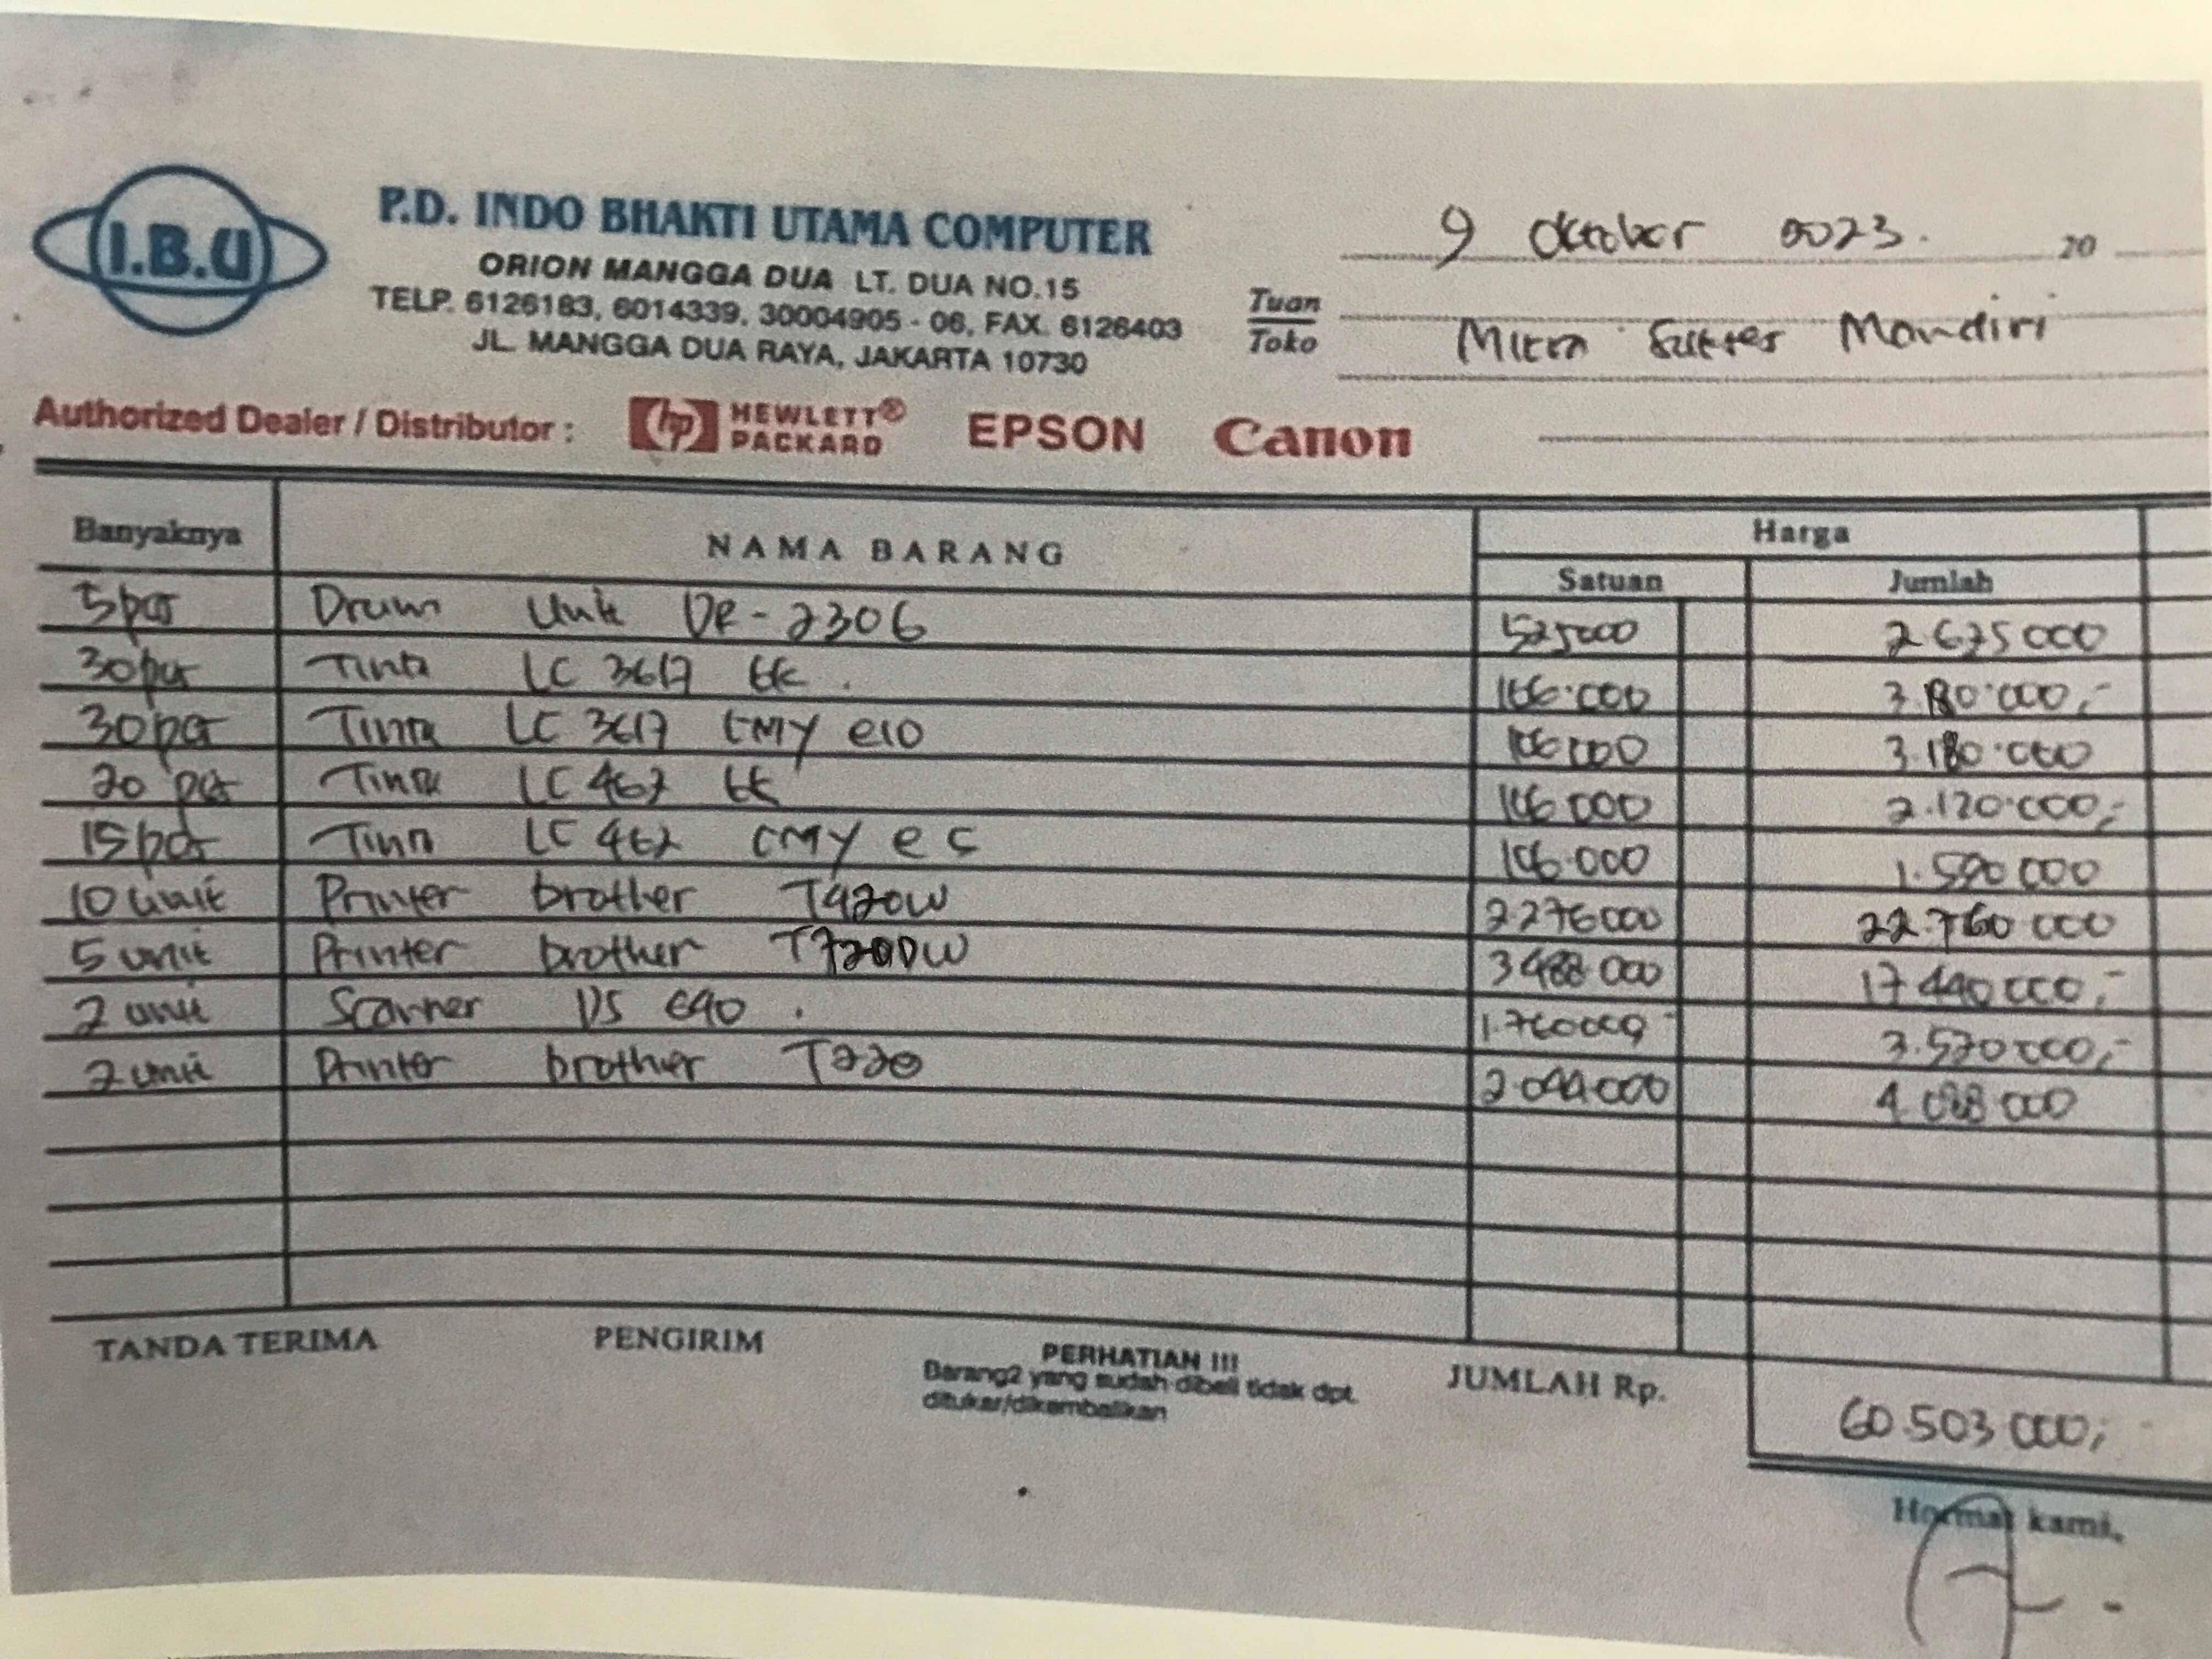 I.B.U
P.D. INDO BHAKTI UTAMA COMPUTER
ORION MANGGA DUA LT. DUA NO.15
TELP. 6126183, 6014339, 30004905 - 06, FAX. 6126403
JL. MANGGA DUA RAYA, JAKARTA 10730
9 Oktober 2023. 20
Tuan
Toko
Mitra Sukses Mandiri
Authorized Dealer / Distributor : hp HEWLETT® PACKARD EPSON Canon
Banyaknya NAMA BARANG Harga
Satuan Jumlah
5 pcs Drum Unit DR-2306 525000 2 625 000
30 pcs Tinta LC 3617 BK. 106.000 3.180.000,-
30 pcs Tinta LC 3617 CMY @10 106000 3.180.000
20 pcs Tinta LC 462 BK 106.000 2.120.000,-
15 pcs Tinta LC 462 CMY @ 5 106.000 1.590 000
10 unit Printer brother T420W 2.276000 22.760 000
5 unit Printer brother T720DW 3 488.000 17 440 000,-
2 unit Scanner DS 640. 1.760000 3.520 000,-
2 unit Printer brother T220 2.044.000 4.088 000
TANDA TERIMA PENGIRIM PERHATIAN !!! JUMLAH Rp. 60.503 000,-
Barang2 yang sudah dibeli tidak dpt.
ditukar/dikembalikan
Hormat kami,